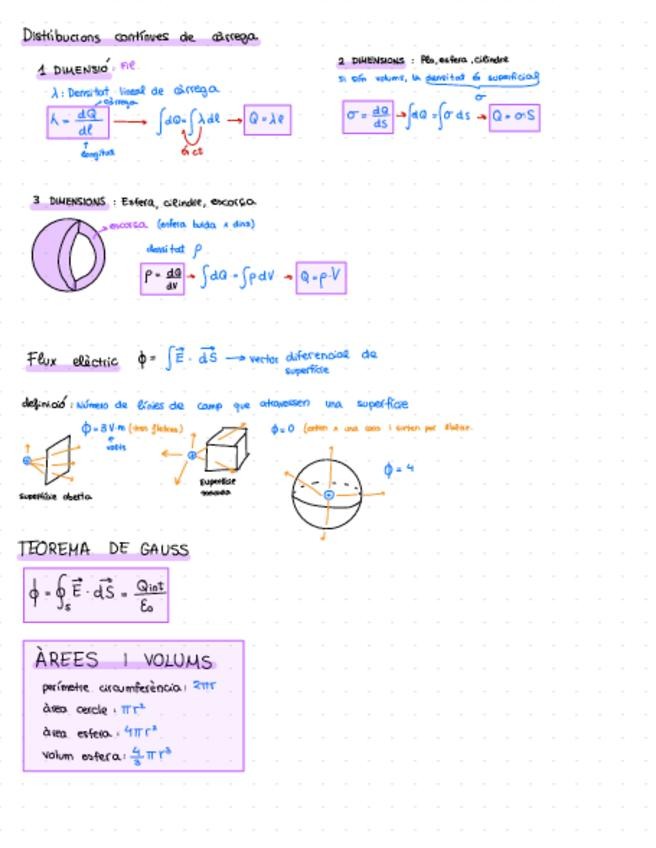 Distribucions contínues de càrrega
1 DIMENSIÓ : Fil
λ: Densitat lineal de càrrega
càrrega
λ = dQ/dl → ∫dQ = ∫λdl → Q = λl
longitud
és ct
2 DIMENSIONS : Pla, esfera, cilindre
si són volums, la densitat és superficial
σ
σ = dQ/dS → ∫dQ = ∫σ ds → Q = σ·S
3 DIMENSIONS : Esfera, cilindre, escorça
escorça (esfera buida x dins)
densitat ρ
ρ = dQ/dV → ∫dQ = ∫ρdV → Q = ρ·V
Flux elèctric ϕ = ∫E⃗ · dS⃗ → vector diferencial de
superfície
definició : Número de línies de camp que atravessen una superfície
ϕ = 3 V·m (tres fletxes)
volts
Superfície oberta
Superfície
tancada
ϕ = 0 (entren x una cara i surten per
ϕ = 4
TEOREMA DE GAUSS
ϕ = ∮s E⃗ · dS⃗ = Qint/ε0
ÀREES I VOLUMS
perímetre circumferència: 2πr
àrea cercle : πr²
àrea esfera : 4πr²
volum esfera: 4/3 πr³